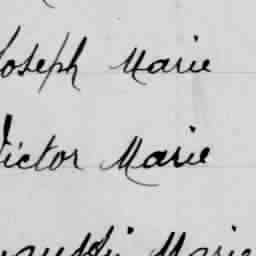 Joseph Marie
Victor Marie
Marie